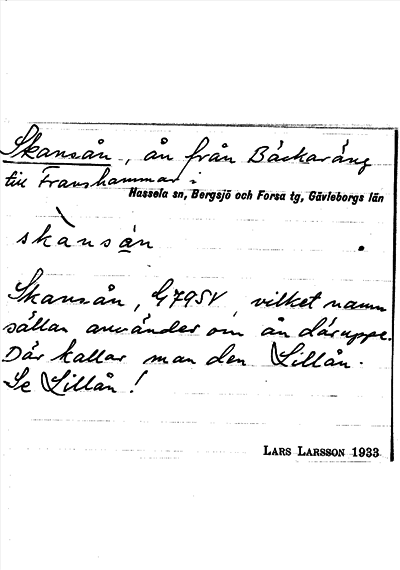 Skansån, ån från Bäckaräng
till Franshammar:
Hassela sn, Bergsjö och Forsa tg, Gävleborgs län
skànsa̲n
Skansån, G79SV, vilket namn
sällan användes om ån däruppe.
Där kallar man den Lillån.
Se Lillån!
LARS LARSSON 1933